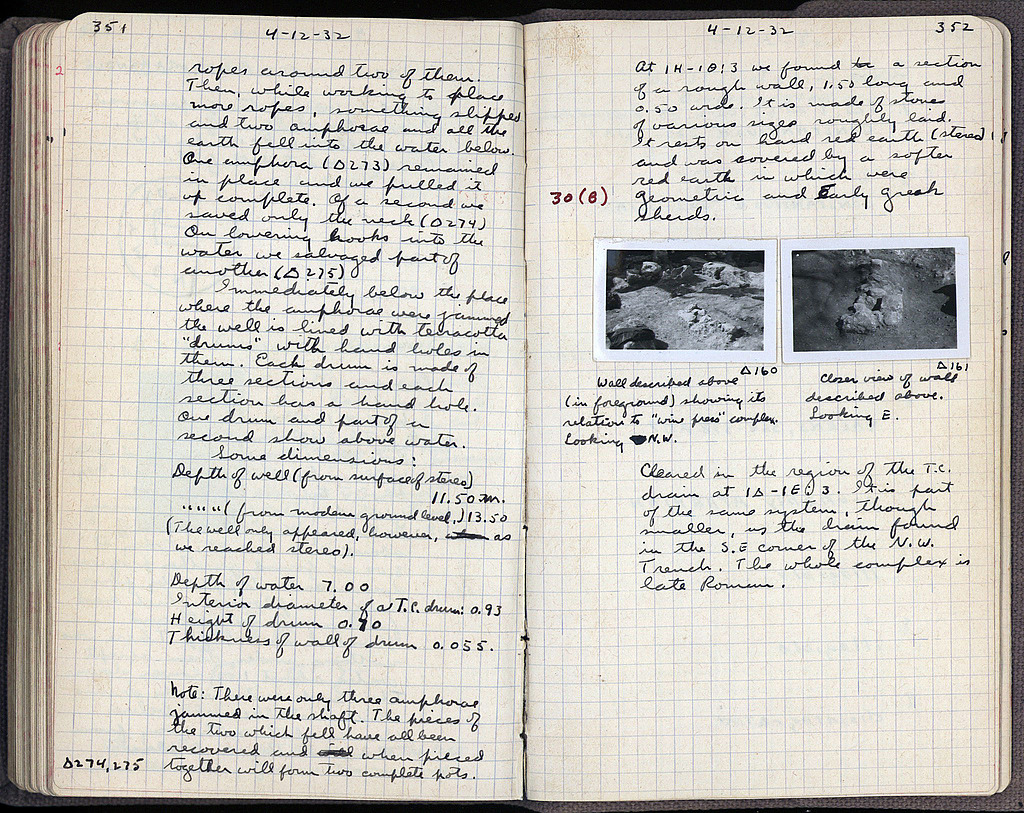 351
4-12-32
ropes around two of them.
Then, while working to place
more ropes, something slipped
and two amphorae and all the
earth fell into the water below.
One amphora (Δ273) remained
in place and we pulled it
up complete. Of a second we
saved only the neck (Δ274)
On lowering hooks into the
water we salvaged part of
another (Δ275)
Immediately below the place
where the amphorae were jammed
the well is lined with terracotta
"drums" with hand holes in
them. Each drum is made of
three sections and each
section has a hand hole.
One drum and part of a
second show above water.
Some dimensions:
Depth of well (from surface of stereo)
11.50 m.
" " " " (from modern ground level,) 13.50
(The well only appeared, however, as
we reached stereo).
Depth of water 7.00
Interior diameter of a T.C. drum: 0.93
Height of drum 0.70
Thickness of wall of drum 0.055.
Note: There were only three amphorae
jammed in the shaft. The pieces of
the two which fell have all been
recovered and when pieced
together will form two complete pots.
Δ274,275
2
4-12-32
352
At 1H-1Θ:3 we found a section
of a rough wall, 1.50 long and
0.50 wide. It is made of stones
of various sizes roughly laid.
It rests on hard red earth (stereo)
and was covered by a softer
red earth in which were
geometric and Early greek
sherds.
30(B)
Δ160
Wall described above
(in foreground) showing its
relation to "wine press" complex.
Looking N.W.
Δ161
Closer view of wall
described above.
Looking E.
Cleared in the region of the T.C.
drain at 1Δ-1E:3. It is part
of the same system, though
smaller, as the drain found
in the S.E corner of the N.W.
Trench. The whole complex is
late Roman.